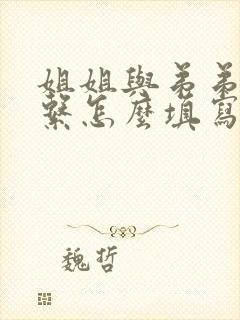 姐姐與弟弟
繫怎麼填寫
魏哲